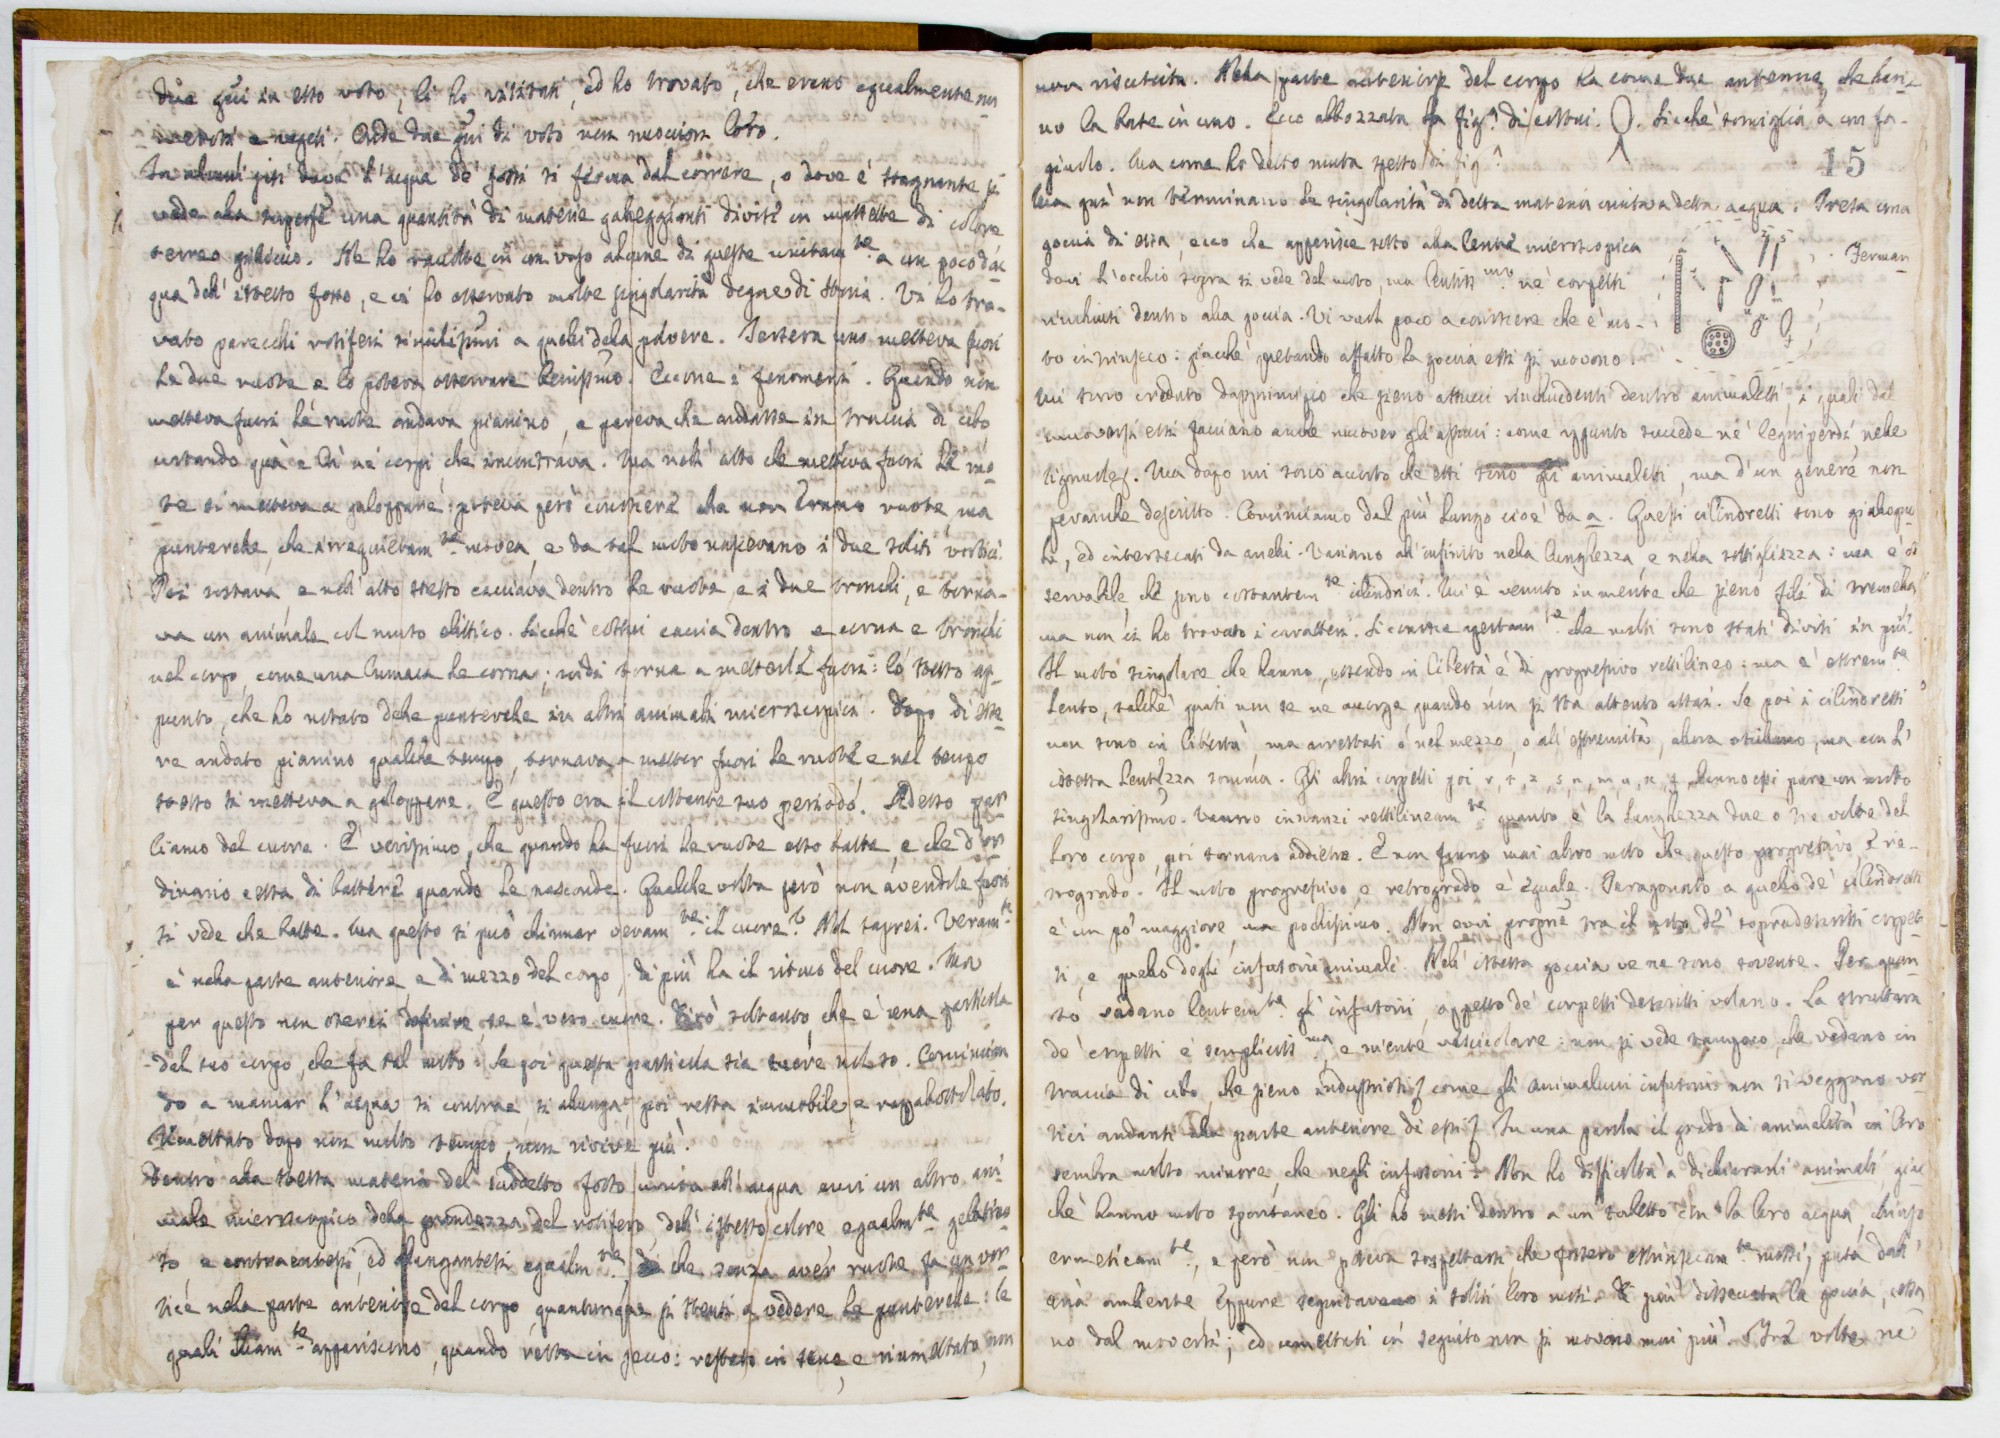 due gni in esso voto, li ho visitati, ed ho trovato, che erano egualmente nu
merosi e vegeti. Onde due gni di voto non nuociono loro.
In alcuni siti dove l'acqua de' fossi si ferma dal correre, o dove è stagnante si
vede alla superfe una quantità di materie galleggianti divise in masselle di colore
terreo gialliccio. Ne ho raccolte in un vaso alcune di queste unitamte a un poco d'ac
qua dell'istesso fosso, e ci ho osservato molte singolarità degne di storia. Vi ho tro-
vato parecchi rotiferi simillissimi a quelli della polvere. Iersera uno metteva fuori
le due ruote e lo poteva osservare benissimo. Eccone i fenomeni. Quando non
metteva fuori le ruote andava pianino, e pareva che andasse in traccia di cibo
urtando quà e là ne' corpi, che incontrava. Ma nell'atto che metteva fuori le ruo
te si metteva a galoppare: poteva però conoscere che non erano ruote, ma
punterelle, che irrequietamte movea, e da tal moto nascevano i due soliti vortici.
Poi restava, e nell'atto stesso cacciava dentro le ruote, e i due tronchi, e torna-
va un animale col muto elittico. Sicchè costui caccia dentro e corna e tronchi
nel corpo, come una lumaca le corna; indi torna a metterle fuori: lo stesso ap
punto, che ho notato delle punterelle in altri animali microscopici. Dopo di esse
re andato pianino qualche tempo, tornava a metter fuori le ruote e nel tempo
stesso si metteva a galoppare. E questo era il costante suo periodo. Adesso par
liamo del cuore. È verissimo, che quando ha fuori le ruote esso batte, e che d'or
dinario cessa di battere quando le nasconde. Qualche volta però non avendole fuori
si vede che batte. Ma questo si può chiamar veramte il cuore? Nol saprei. Veramte
è nella parte anteriore, e di mezzo del corpo, di più ha il ritmo del cuore. Ma
per questo non oserei definire se è vero cuore. Dirò soltanto, che è una particola
del suo corpo, che fa tal moto: se poi questa particella sia cuore nol so. Comincian
do a mancar l'acqua si contrae si allunga poi resta immobile, e rappallottolato.
Rimoltato dopo non molto tempo, non rivive più.
Dentro alla stessa materia del suddetto fosso unita all'acqua evvi un altro ani
male microscopico della grandezza del rotifero, dell'istesso colore egualmte gelatino
so, e contraentesi, ed allungantesi egualmte, che senza aver ruote fa un vor
tice nella parte anteriore del corpo quantunque si stenti a vedere le punterelle: le
quali chiaramte appariscono, quando resta in secco: restato in secco, e riumettato, non
mai risuscita. Nella parte anteriore del corpo ha come due antenne, che han-
no la base in uno. Ecco abbozzata la figa di costui. Sicchè somiglia a un fa-
giuolo. Ma come ho detto muta spesso di figa
15
Ma quì non terminano le singolarità di detta materia unita a detta acqua. Presa una
goccia di essa, ecco che apparisce sotto alla lente microscopica
Ferman
dovi l'occhio sopra si vede del moto, ma lentissmo ne' corpetti
rinchiusi dentro alla goccia. Vi vuol poco a conoscere che è mo-
to intrinseco: giacchè quetando affatto la goccia essi si movono.
Mi sono creduto dapprincipio che sieno astucci rinchiudenti dentro animaletti, i quali dal
muoversi essi facciano anche muover gli astucci: come appunto succede ne' legniperdi nelle
tignuole. Ma dopo mi sono accorto che essi sono animaletti, ma d'un genere non
peranche descritto. Cominciamo dal più lungo cioè da a. Questi cilindretti sono giallogno
li, ed intersecati da anelli. Variano all'infinito nella lunghezza, e nella sottigliezza: ma è os
servabile che sono costantemte cilindrici. Mi è venuto in mente che sieno fili di tremella
ma non ci ho trovato i caratteri. Si conosce apertamte che molti sono stati divisi in più.
Il moto singolare che hanno, essendo in libertà è di progressivo rettilineo: ma è estremte
lento, talchè quasi non se ne accorge quando non si sta attento assai. Se poi i cilindretti
non sono in libertà, ma arrestati o nel mezzo, o all'estremità, allora oscillano, ma con l'
istessa lentezza somma. Gli altri corpetti poi r, t, z, s, n, m, u, x, q hanno essi pure un moto
singolarissimo. Vanno innanzi rettilineamte quanto è la lunghezza due o tre volte del
loro corpo, poi tornano addietro. E non fanno mai altro moto che questo progressivo, e re-
trogrado. Il moto progressivo, e retrogrado è eguale. Paragonato a quello de' cilindretti
è un po' maggiore, ma pochissimo. Non evvi propne tra il moto de' sopradescritti corpet
ti, e quello degli infusorii animali. Nell'istessa goccia ve ne sono sovente. Per quan
to vadano lentemte gl'infusorii, appetto de' corpetti descritti volano. La struttura
de' corpetti è semplicissma, e niente vescicolare: non si vede tampoco, che vadano in
traccia di cibo, che sieno industriosi come gli animalucci infusorii non si veggono vor
tici andanti alla parte anteriore di essi. In una parola il grado di animalità in loro
sembra molto minore, che negli infusorii. Non ho difficoltà a dichiararli animali, giac
chè hanno moto spontaneo. Gli ho messi dentro a un tubetto con la loro acqua, chiuso
ermeticamte, e però non poteva sospettarsi che fossero estrinsecamte mossi, puta dall'
aria ambiente. Eppure seguitavano i soliti loro moti. Di più disseccata la goccia, cessa
no dal moversi; ed umettati in seguito non si movono mai più. Tre volte ne